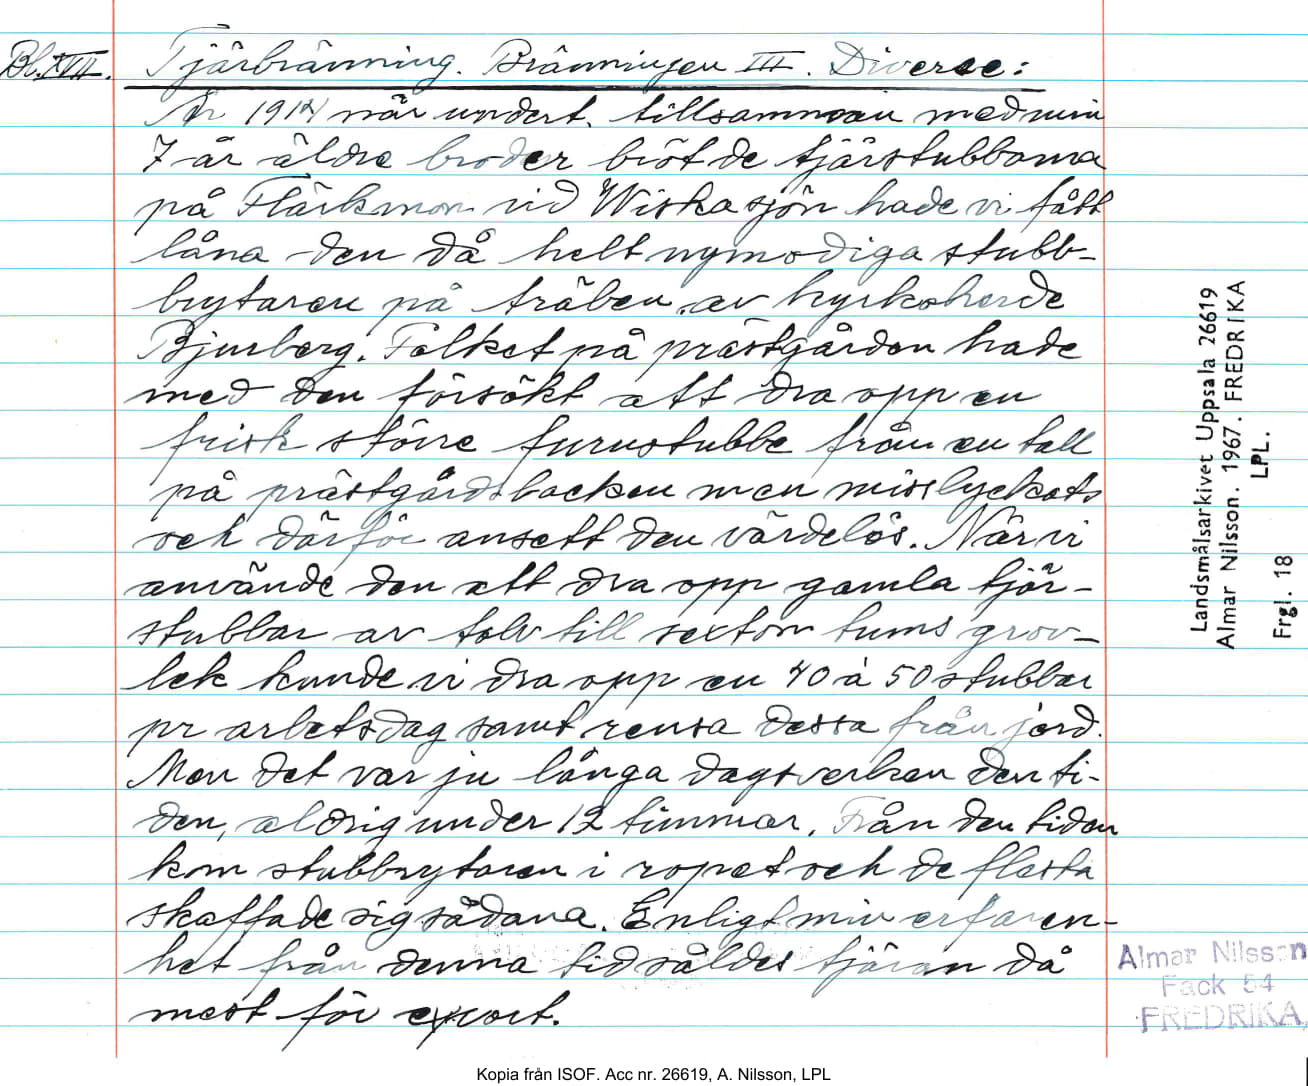 Bl. XVII.
Tjärbränning. Bränningen III. Diverse:
År 1914 när undert. tillsamman med min
7 år äldre broder bröt de tjärstubbarna
på Flärkmon vid Wiskasjön hade vi fått
låna den då helt nymodiga stubb-
brytaren på träben, av kyrkoherde
Bjurberg. Folket på prästgården hade
med den försökt att dra opp en
frisk större furustubbe från en tall
på prästgårdsbacken men misslyckats
och därför ansett den värdelös. När vi
använde den att dra opp gamla tjär-
stubbar av tolv till sexton tums grov-
lek kunde vi dra opp en 40 à 50 stubbar
pr arbetsdag samt rensa dessa från jord.
Men det var ju långa dagsverken den ti-
den, aldrig under 12 timmar. Från den tiden
kom stubbrytaren i ropet och de flesta
skaffade sig sådana. Enligt min erfaren-
het från denna tid såldes tjäran då
mest för export.
Landsmålsarkivet Uppsala 26619
Almar Nilsson. 1967. FREDRIKA
LPL.
Frgl. 18
Almar Nilsson
Fack 54
FREDRIKA
Kopia från ISOF. Acc nr. 26619, A. Nilsson, LPL